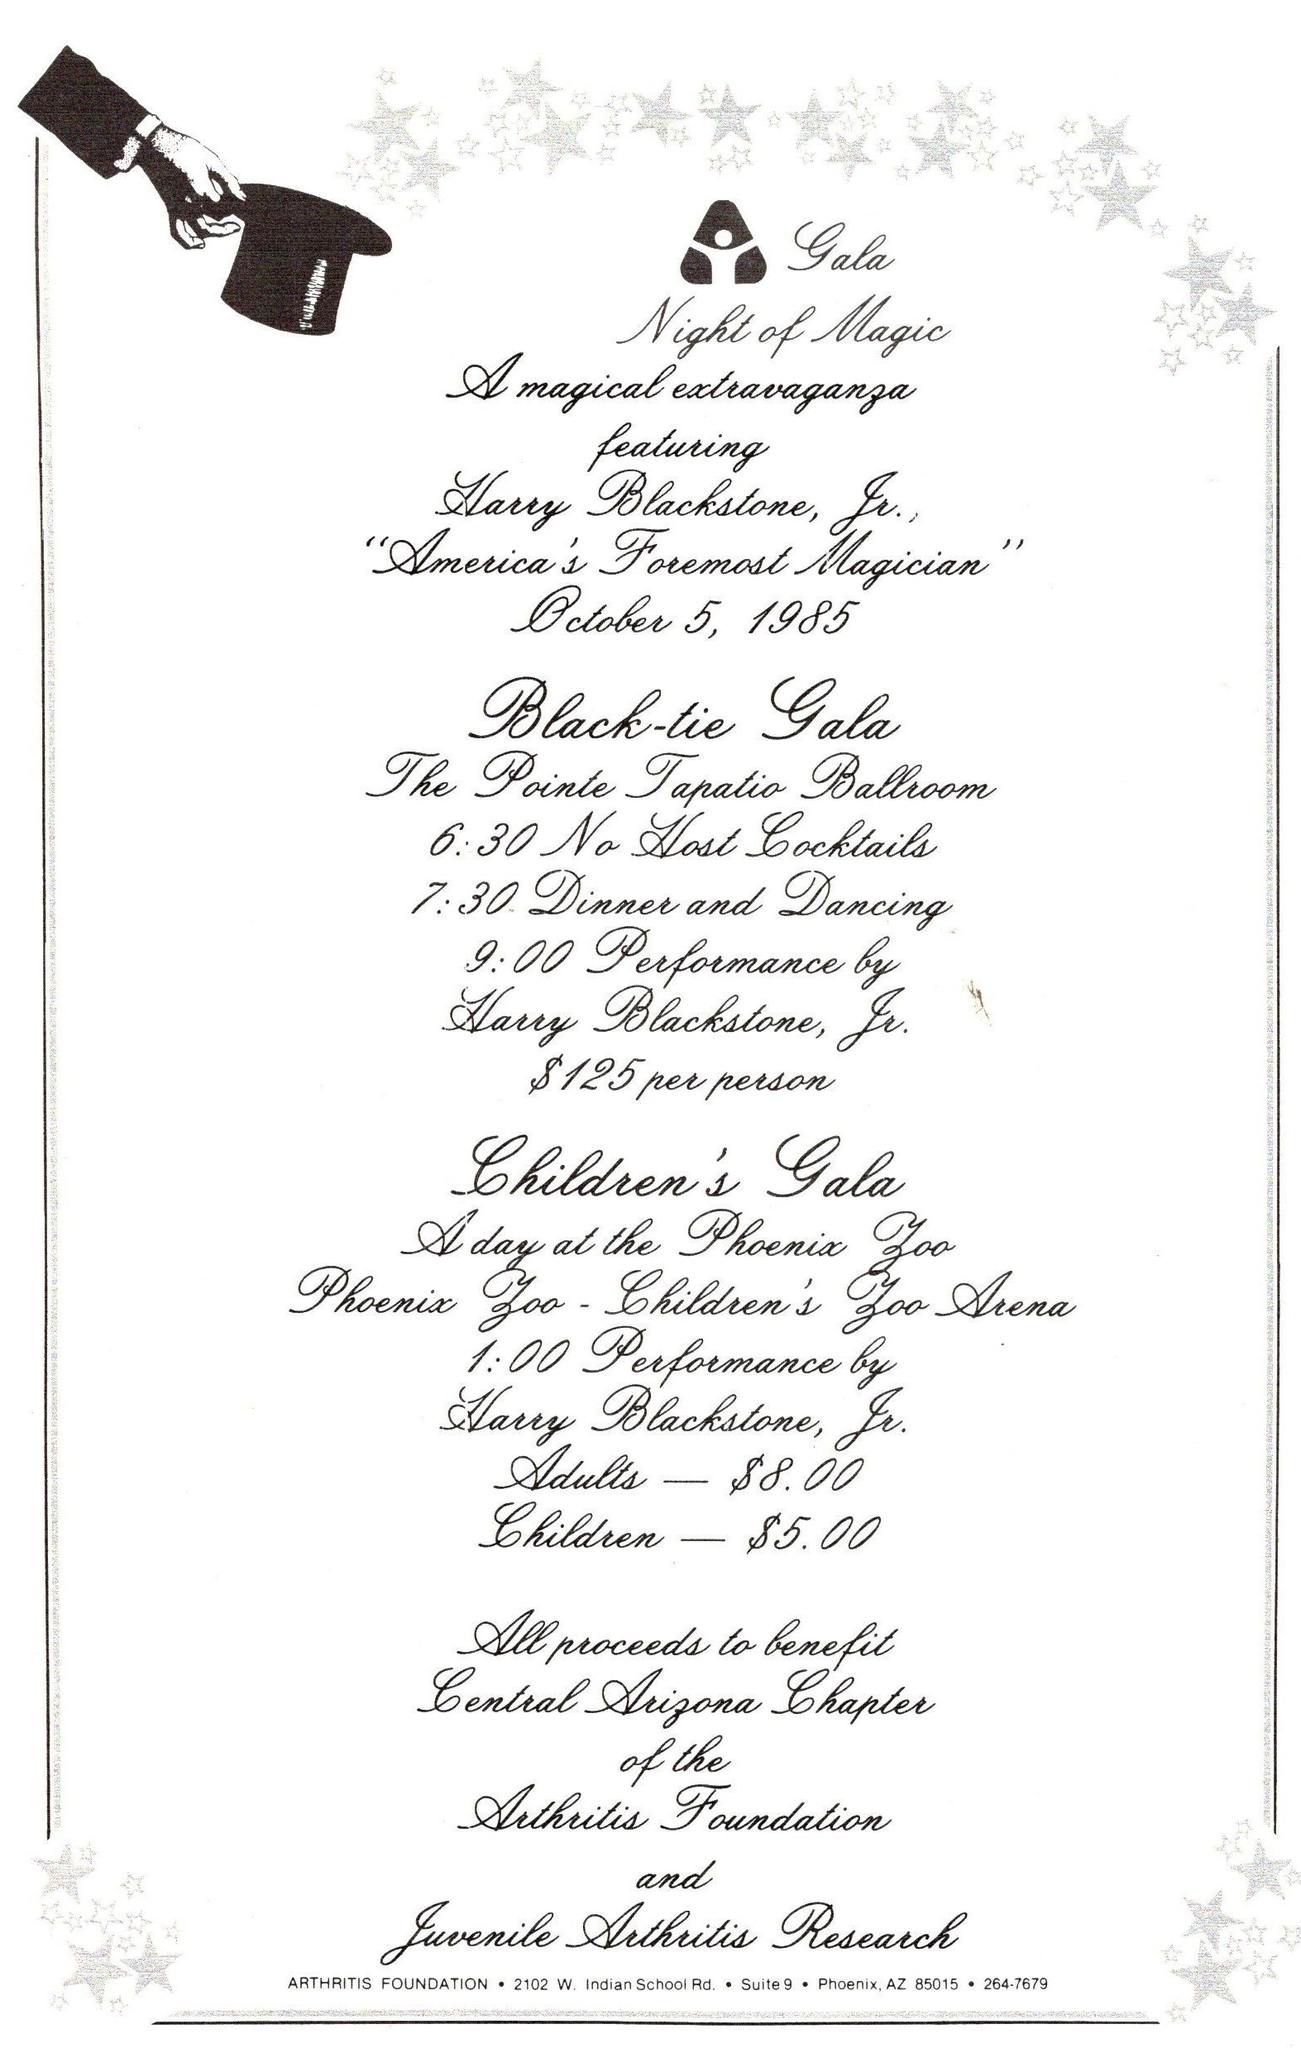 Gala
Night of Magic
A magical extravaganza
featuring
Harry Blackstone, Jr.,
"America's Foremost Magician"
October 5, 1985
Black-tie Gala
The Pointe Tapatio Ballroom
6:30 No Host Cocktails
7:30 Dinner and Dancing
9:00 Performance by
Harry Blackstone, Jr.
$125 per person
Children's Gala
A day at the Phoenix Zoo
Phoenix Zoo - Children's Zoo Arena
1:00 Performance by
Harry Blackstone, Jr.
Adults — $8.00
Children — $5.00
All proceeds to benefit
Central Arizona Chapter
of the
Arthritis Foundation
and
Juvenile Arthritis Research
ARTHRITIS FOUNDATION • 2102 W. Indian School Rd. • Suite 9 • Phoenix, AZ 85015 • 264-7679